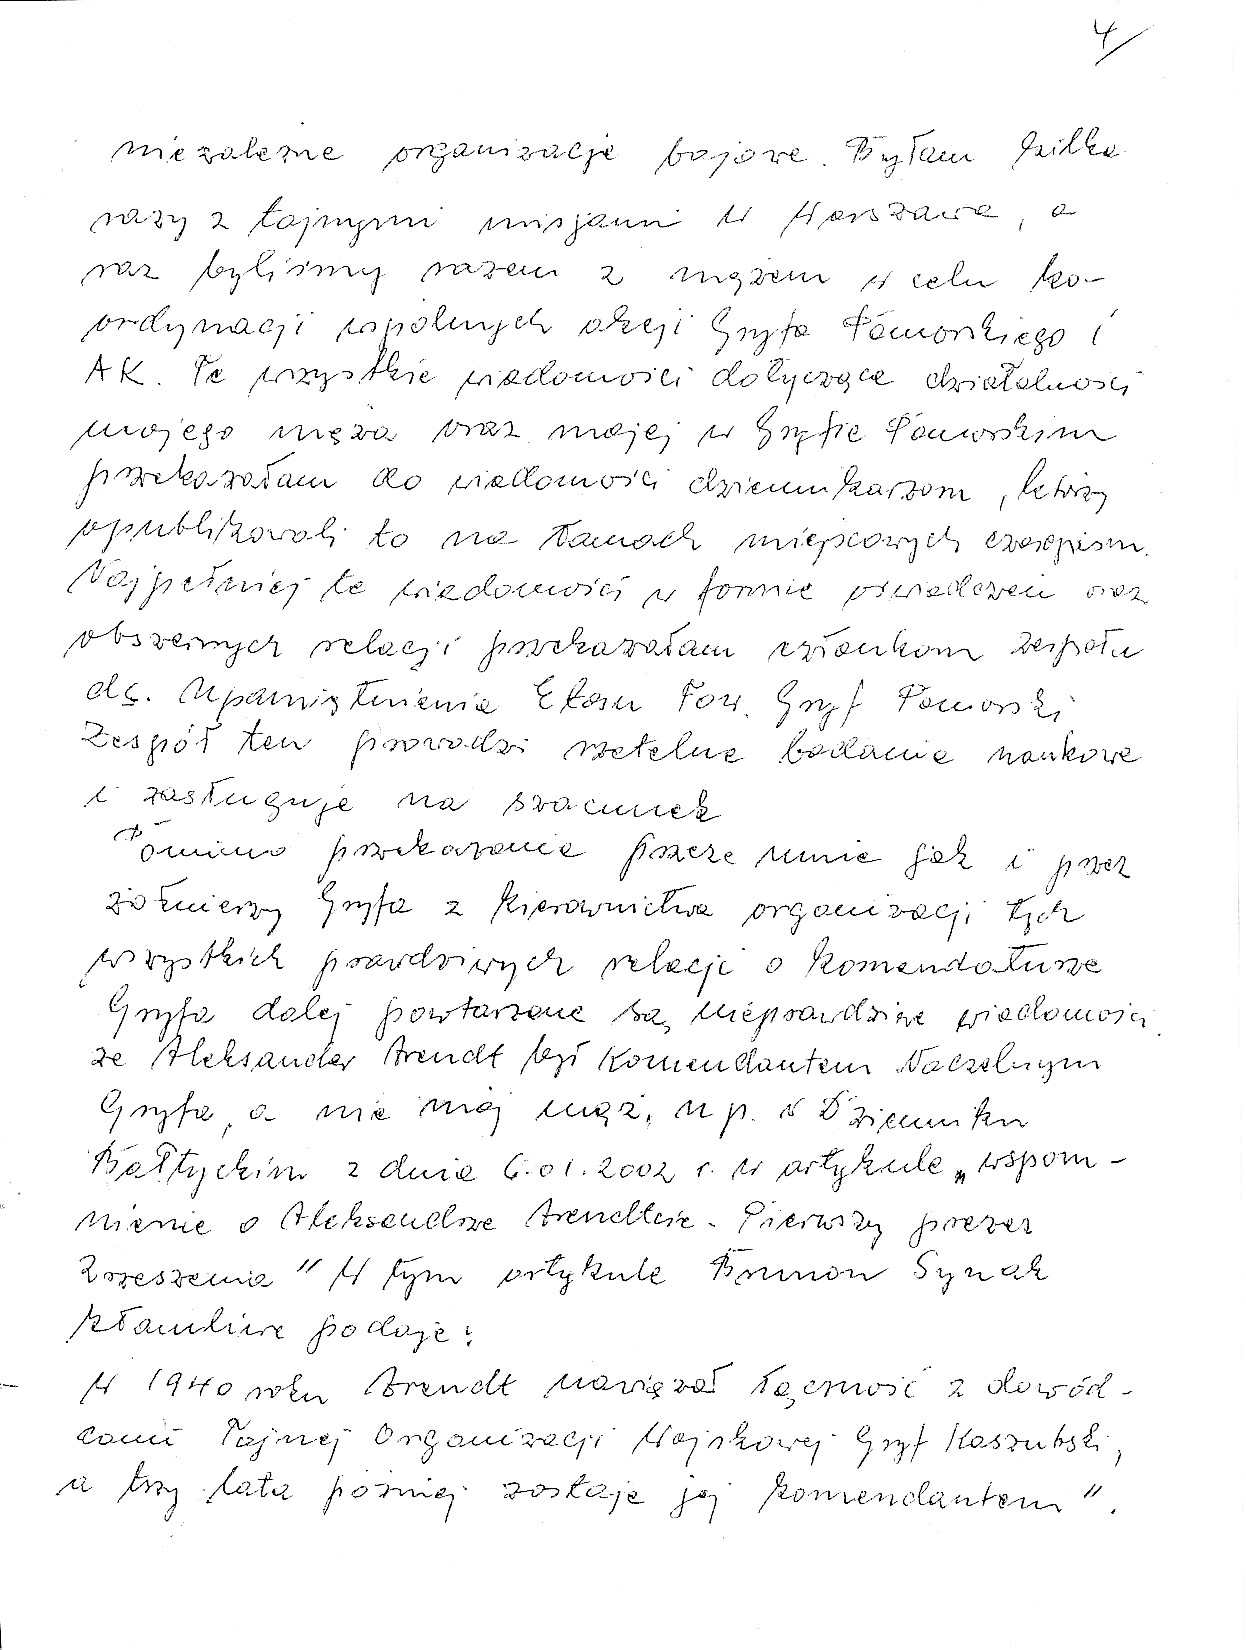 4/
niezależne organizacje bojowe. Byłam kilka
razy z tajnymi misjami w Warszawie, a
raz byliśmy razem z mężem w celu ko-
ordynacji wspólnych akcji Gryfa Pomorskiego i
AK. Te wszystkie wiadomości dotyczące działalności
mojego męża oraz mojej w Gryfie Pomorskim
przekazałam do wiadomości dziennikarzom, którzy
opublikowali to na łamach miejscowych czasopism.
Najpełniej te wiadomości w formie oświadczeń oraz
obszernych relacji przekazałam członkom zespołu
ds. Upamiętnienia Etosu TOW. Gryf Pomorski
Zespół ten prowadzi rzetelne badania naukowe
i zasługuje na szacunek
Pomimo przekazania przeze mnie jak i przez
żołnierzy Gryfa z kierownictwa organizacji tych
wszystkich prawdziwych relacji o komendaturze
Gryfa dalej powtarzane są nieprawdziwe wiadomości
że Aleksander Arendt był Komendantem Naczelnym
Gryfa, a nie mój mąż, np. w Dzienniku
Bałtyckim z dnia 6.01.2002 r. w artykule „wspom-
nienie o Aleksandrze Arendtcie. Pierwszy prezes
Zrzeszenia" W tym artykule Brunon Synak
kłamliwie podaje:
W 1940 roku Arendt nawiązał łączność z dowód-
cami Tajnej Organizacji Wojskowej Gryf Kaszubski,
a trzy lata później zostaje jej komendantem".